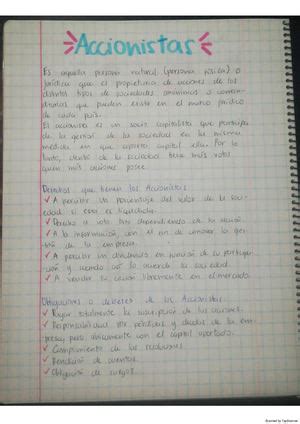 Accionistas
Es aquella persona natural (persona física) o
jurídica que es propietaria de acciones de los
distintos tipos de sociedades anónimas o coman-
ditarias que pueden existir en el marco jurídico
de cada país.
El accionista es un socio capitalista que participa
de la gestión de la sociedad en la misma
medida en que aporta capital ella. Por lo
tanto, dentro de la sociedad tiene más votos
quien más acciones posee.
Derechos que tienen los Accionistas
✓ A percibir un porcentaje del valor de la soci-
edad si esta es liquidada.
✓ Derecho a voto dependiendo de la acción
✓ A la información, con el fin de conocer la ges-
tión de la empresa.
✓ A percibir un dividendo en función de su partici-
ón y cuando así lo acuerde la sociedad
✓ A vender su acción libremente en el mercado.
Obligaciones o deberes de los Accionistas
✓ Pagar totalmente la suscripción de las acciones.
✓ Responsabilidad por pérdidas y deudas de la em-
presa, pero únicamente con el capital aportado.
✓ Cumplimiento de los
✓ Rendición de cuentas.
✓ Obligación de cargos.
Scanned by CamScanner